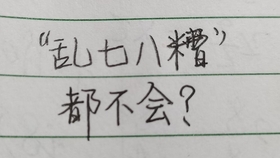 “乱七八糟”
都不会?